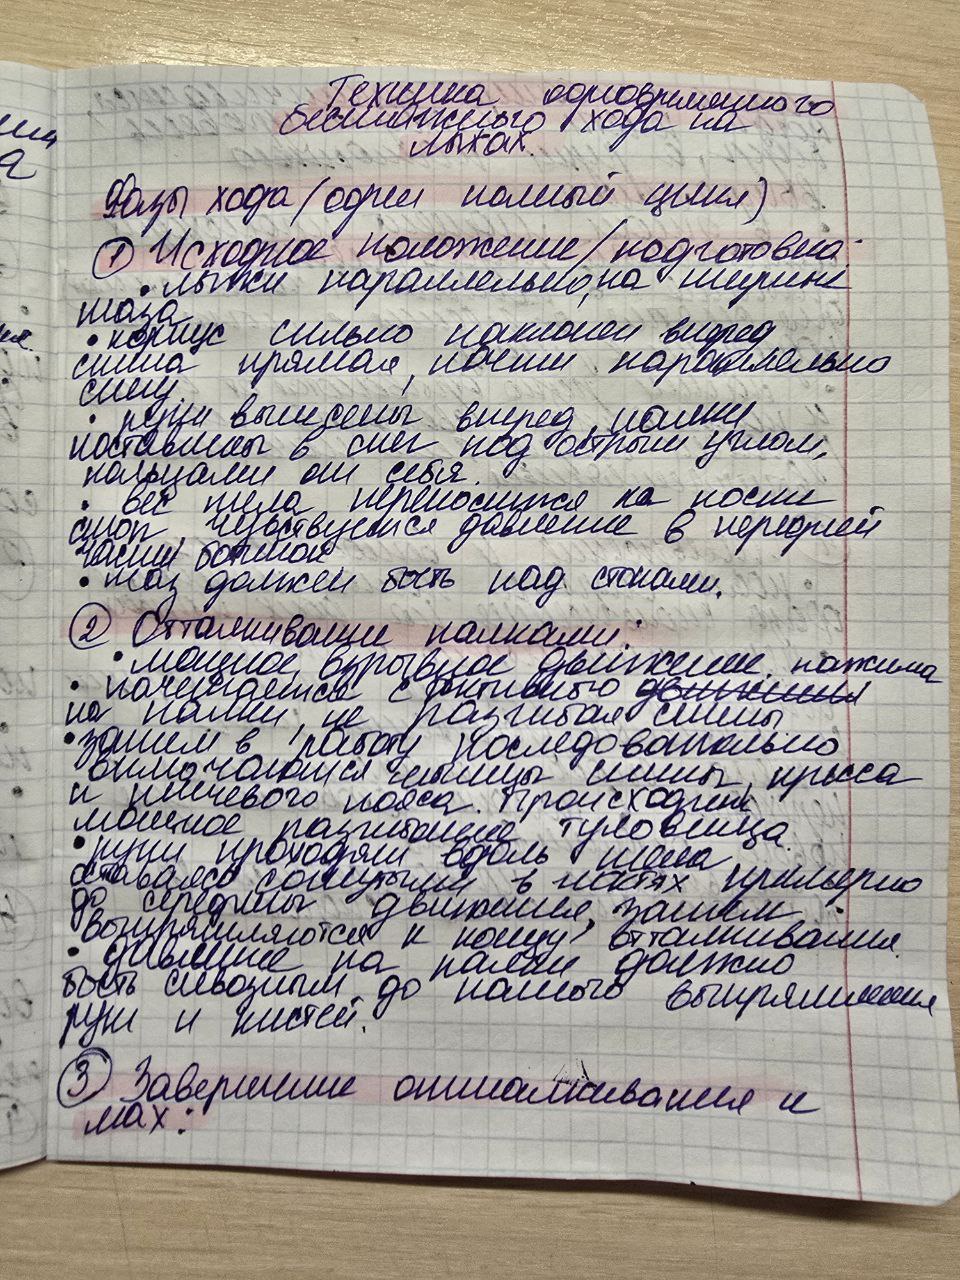 Техника одновременного
бесшажного хода на
лыхах.
Фазы хода (один полный цикл)
① Исходное положение/подготовка:
• лыжи параллельно, на ширине
таза
• корпус сильно наклонен вперед
спина прямая, почти параллельно
снегу
• руки вынесены вперед, палки
поставлены в снег под острым углом,
кольцами от себя.
• вес тела переносится на носки
стоп, чувствуется давление в передней
части ботинок
• таз должен быть над стопами.
② Отталкивание палками:
• мощное взрывное движение.
• начинается с активного нажима
на палки, не разгибая спины
• затем в работу последовательно
включаются мышцы спины, пресса
и плечевого пояса. Происходит
мощное разгибание туловища.
• руки проходят вдоль тела,
оставаясь согнутыми в локтях примерно
до середины движения, затем
выпрямляются к концу отталкивания.
• давление на палки должно
быть сквозным до полного выпрямления
рук и кистей.
③ Завершение отталкивания и
мах: